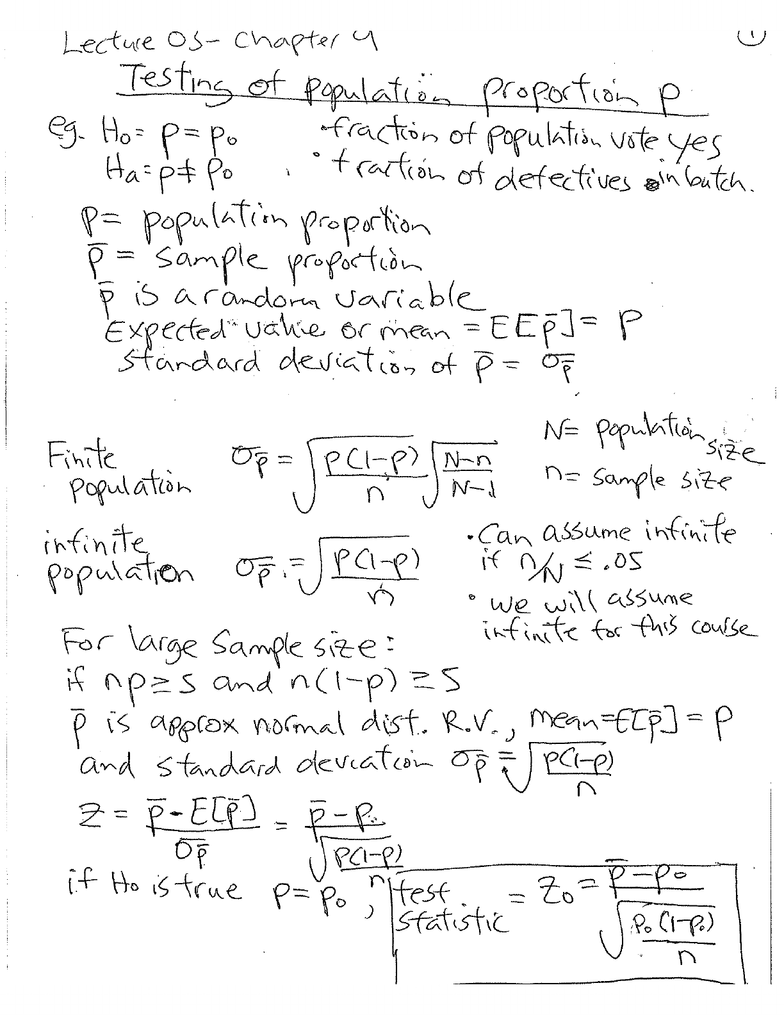 Lecture 03- Chapter 4
(1)
Testing of population proportion p
eg. Ho= p = po •fraction of population vote yes
Ha= p ≠ po • fraction of defectives in batch.
p = population proportion
p̄ = sample proportion
p̄ is a random variable
Expected value or mean = E[p̄] = p
standard deviation of p̄ = σp̄
Finite population σp̄ = √(p(1-p)/n) √((N-n)/(N-1))
N= population size
n= sample size
infinite population σp̄ = √(p(1-p)/n)
• Can assume infinite
if n/N ≤ .05
• we will assume
infinite for this course
For large sample size:
if np ≥ 5 and n(1-p) ≥ 5
p̄ is approx normal dist. R.V., mean=E[p̄] = p
and standard deviation σp̄ = √(p(1-p)/n)
Z = (p̄ - E[p̄])/σp̄ = (p̄ - p)/√(p(1-p)/n)
if Ho is true p = po, test statistic = Zo = (p̄ - po)/√(po(1-po)/n)